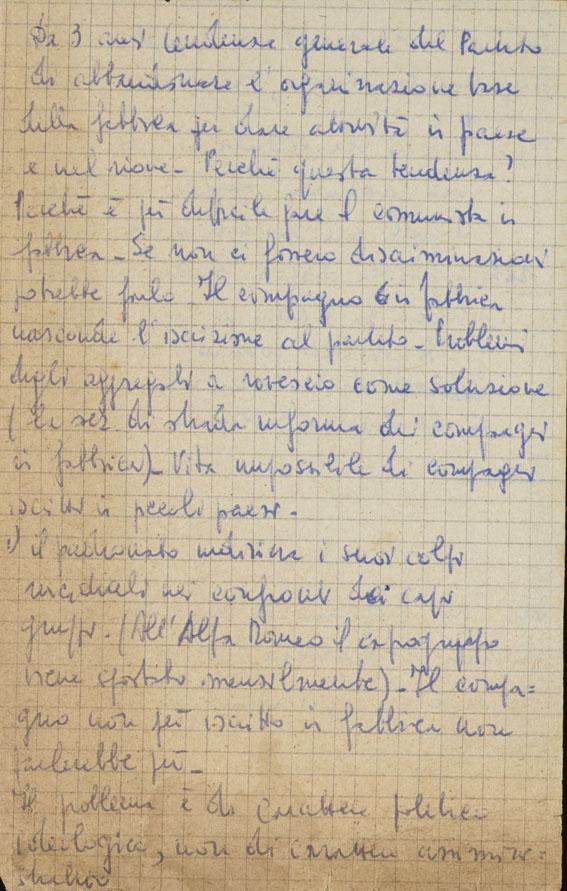 Da 3 anni tendenza generale del Partito
di abbandonare l'organizzazione base
della fabbrica per dare attività in paese
e nel rione - Perchè questa tendenza?
Perchè è più difficile fare il comunista in
fabbrica - Se non ci fossero discriminazioni
potrebbe farlo - Il compagno in fabbrica
nasconde l'iscrizione al partito - Problemi
degli aggregati a rovescio come soluzione
(la sez. di strada informa dei compagni
in fabbrica) - Vita impossibile di compagni
iscritti in piccoli paesi -
il padronato indirizza i suoi colpi
micidiali nei confronti dei capi
gruppi. (All'Alfa Romeo il capogruppo
viene spostato mensilmente) - Il compa=
gno non più iscritto in fabbrica non
parlerebbe più -
Il problema è di carattere politico
ideologico, non di carattere ammini=
strativo